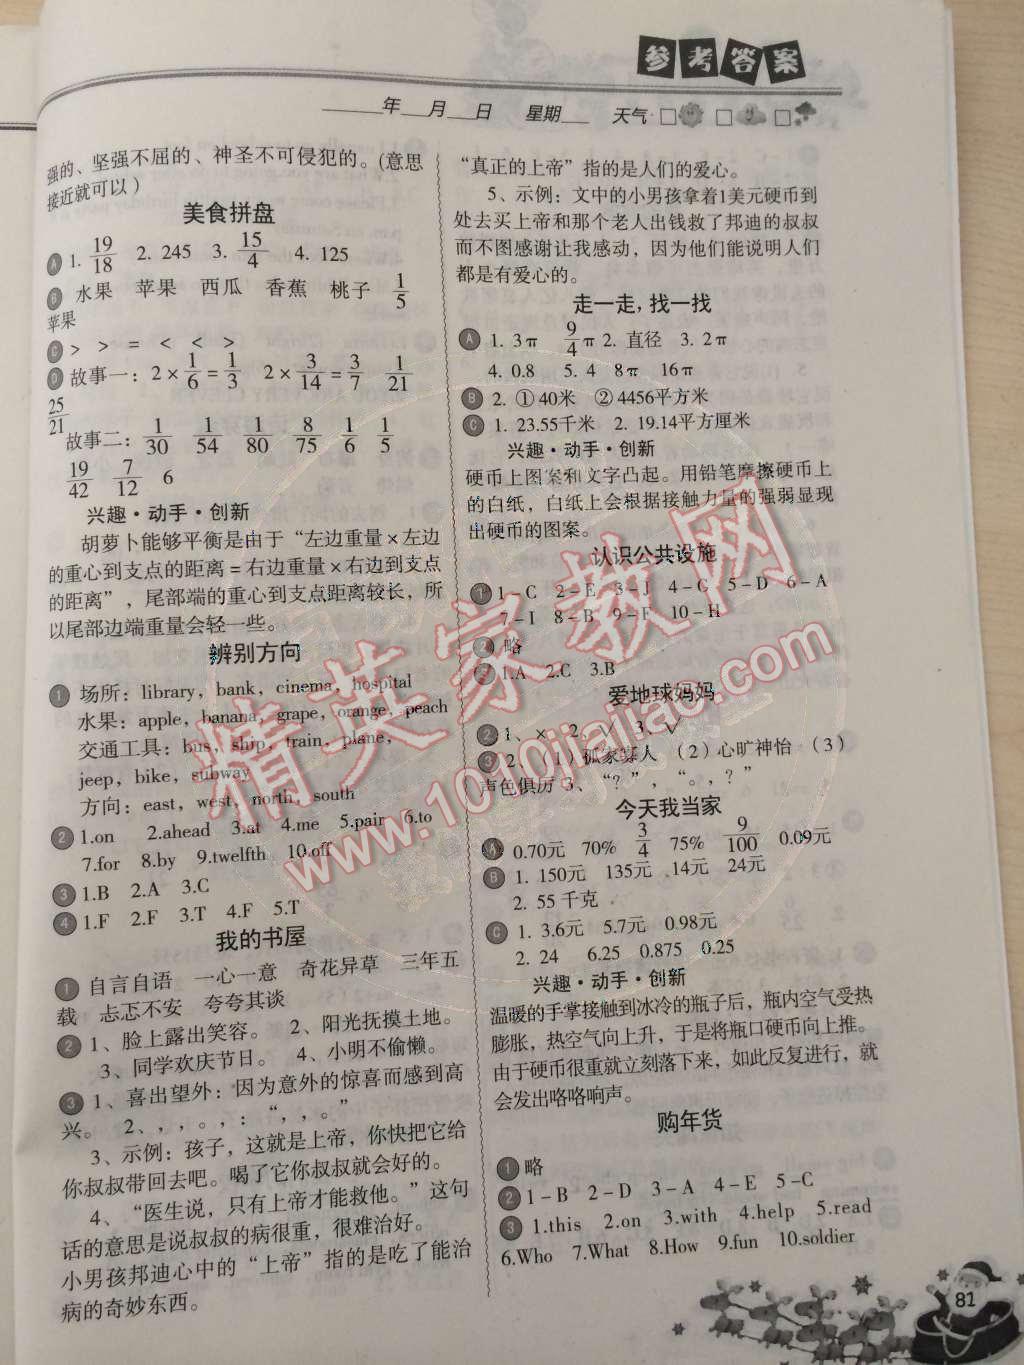 参考答案
____年___月___日 星期___ 天气 □ □ □
强的、坚强不屈的、神圣不可侵犯的。(意思
接近就可以)
美食拼盘
A 1. 19/18 2. 245 3. 15/4 4. 125
B 水果 苹果 西瓜 香蕉 桃子 1/5
苹果
C > > = < < >
D 故事一：2×1/6=1/3 2×3/14=3/7 1/21
25/21
故事二：1/30 1/54 1/80 8/75 1/6 1/5
19/42 7/12 6
兴趣·动手·创新
胡萝卜能够平衡是由于“左边重量×左边
的重心到支点的距离=右边重量×右边到支点
的距离”，尾部端的重心到支点距离较长，所
以尾部边端重量会轻一些。
辨别方向
1 场所：library，bank，cinema，hospital
水果：apple，banana，grape，orange，peach
交通工具：bus，ship，train，plane，
jeep，bike，subway
方向：east，west，north，south
2 1.on 2.ahead 3.at 4.me 5.pair 6.to
7.for 8.by 9.twelfth 10.off
3 1.B 2.A 3.C
4 1.F 2.F 3.T 4.F 5.T
我的书屋
1 自言自语 一心一意 奇花异草 三年五
载 忐忑不安 夸夸其谈
2 1、脸上露出笑容。 2、阳光抚摸土地。
3、同学欢庆节日。 4、小明不偷懒。
3 1、喜出望外：因为意外的惊喜而感到高
兴。 2、，，。，：“，，。”
3、示例：孩子，这就是上帝，你快把它给
你叔叔带回去吧。喝了它你叔叔就会好的。
4、“医生说，只有上帝才能救他。”这句
话的意思是说叔叔的病很重，很难治好。
小男孩邦迪心中的“上帝”指的是吃了能治
病的奇妙东西。
“真正的上帝”指的是人们的爱心。
5、示例：文中的小男孩拿着1美元硬币到
处去买上帝和那个老人出钱救了邦迪的叔叔
而不图感谢让我感动，因为他们能说明人们
都是有爱心的。
走一走，找一找
A 1. 3π 9/4π 2. 直径 3. 2π
4. 0.8 5. 4 8π 16π
B 2. ①40米 ②4456平方米
C 1. 23.55千米 2. 19.14平方厘米
兴趣·动手·创新
硬币上图案和文字凸起。用铅笔摩擦硬币上
的白纸，白纸上会根据接触力量的强弱显现
出硬币的图案。
认识公共设施
1 1-C 2-E 3-J 4-G 5-D 6-A
7-I 8-B 9-F 10-H
2 略
3 1.A 2.C 3.B
爱地球妈妈
2 1、× 2、√ 3、√
3 2、（1）孤家寡人 （2）心旷神怡 （3）
声色俱厉 3、“？”，“。，？”
今天我当家
A 0.70元 70% 3/4 75% 9/100 0.09元
B 1. 150元 135元 14元 24元
2. 55千克
C 1. 3.6元 5.7元 0.98元
2. 24 6.25 0.875 0.25
兴趣·动手·创新
温暖的手掌接触到冰冷的瓶子后，瓶内空气受热
膨胀，热空气向上升，于是将瓶口硬币向上推。
由于硬币很重就立刻落下来，如此反复进行，就
会发出咯咯响声。
购年货
1 略
2 1-B 2-D 3-A 4-E 5-C
3 1.this 2.on 3.with 4.help 5.read
6.Who 7.What 8.How 9.fun 10.soldier
81
精英家教网
www.1010jiajiao.com